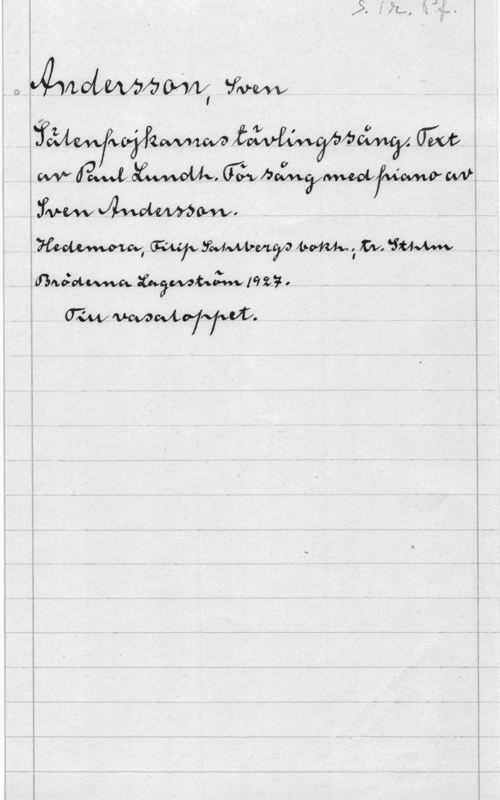 S. 1 r. Pf.
Andersson, Sven
Sälenpojkarnas tävlingssång. Text
av Paul Lundh. För sång med piano av
Sven Andersson.
Hedemora, Filip Sahlbergs bokh.; tr. Sthlm
Bröderna Lagerström 1927.
Till vasaloppet.